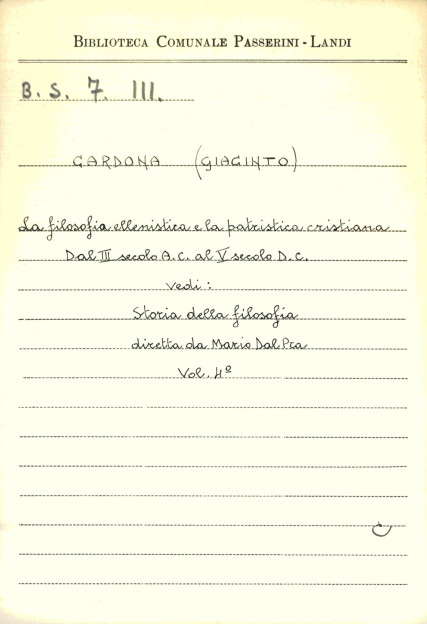 BIBLIOTECA COMUNALE PASSERINI - LANDI
B. S. 7. III.
CARDONA (GIACINTO)
La filosofia ellenistica e la patristica cristiana
Dal III secolo A.C. al V secolo D.C.
vedi:
Storia della filosofia
diretta da Mario Dal Pra
Vol. 4º